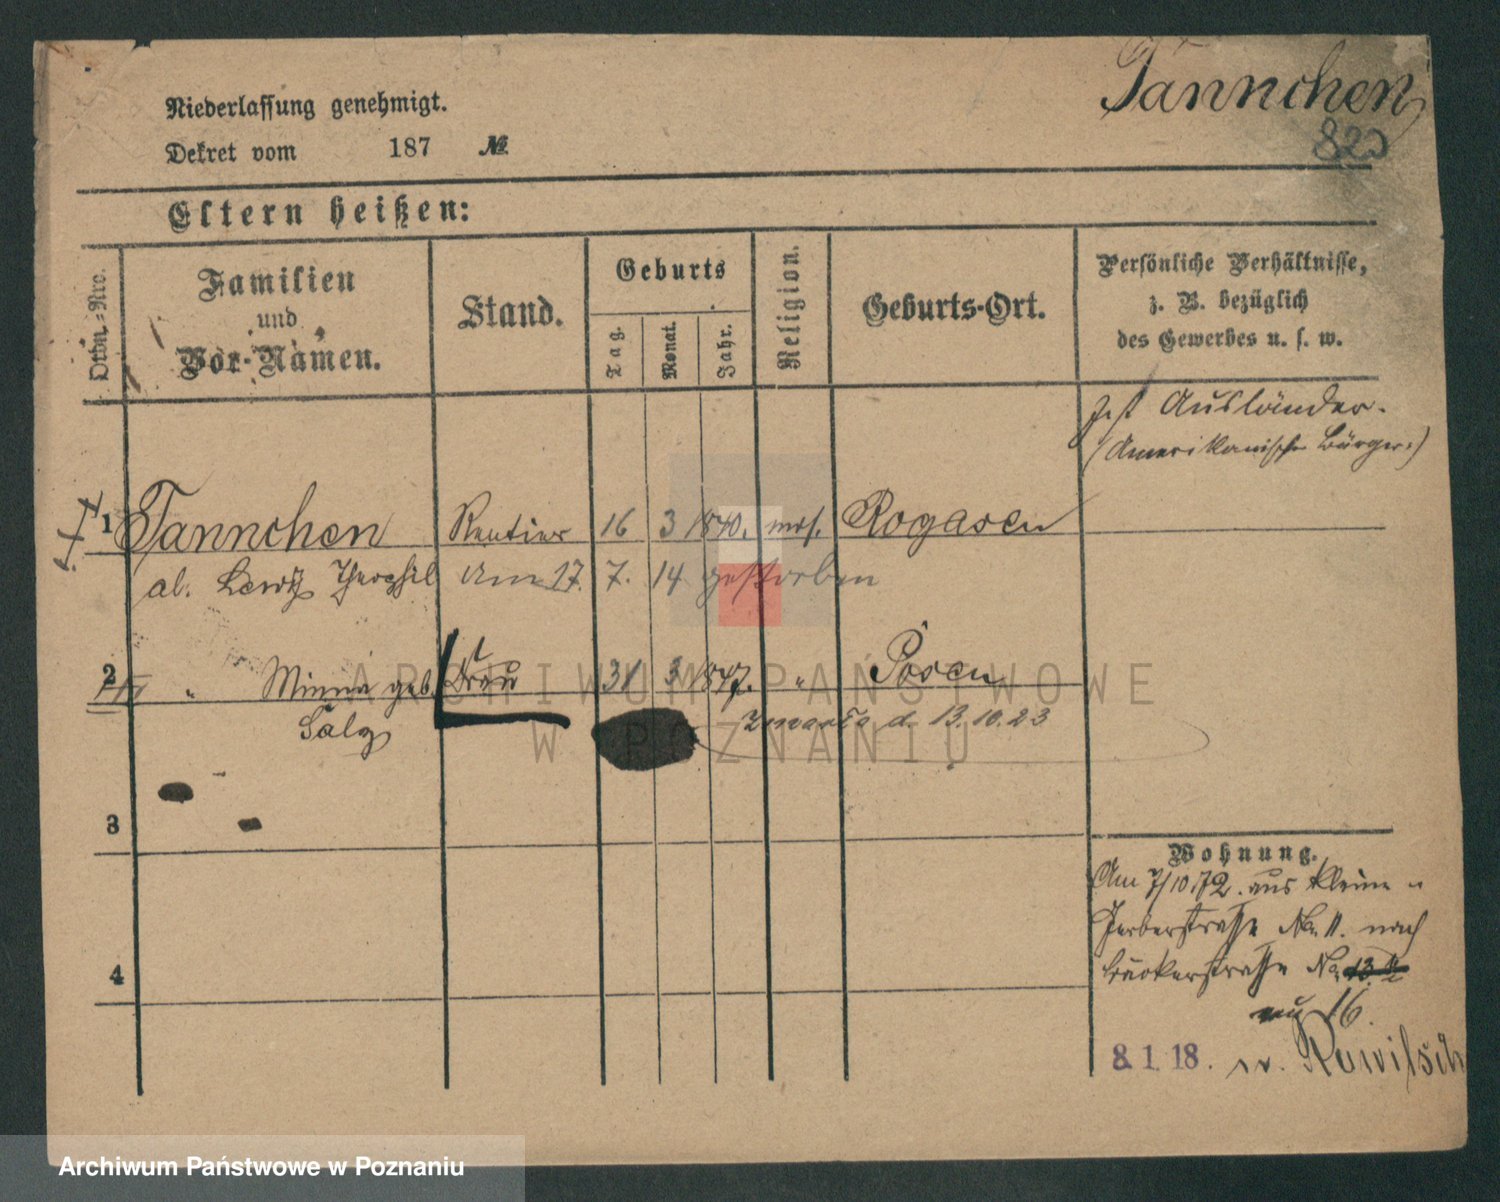 Tännchen
820
Niederlassung genehmigt.
Dekret vom 187 №
Eltern heißen:
Ordn.-Nro.
Familien und Vor-Namen.
Stand.
Geburts
Tag.
Monat.
Jahr.
Religion.
Geburts-Ort.
Persönliche Verhältnisse,
z. B. bezüglich
des Gewerbes u. s. w.
Ist Ausländer.
(Amerikanischer Bürger)
1 Tännchen Rentier 16 3 1840. mos. Rogasen
al. Lewÿ Theophil Am 17. 7. 14 gestorben
2 " Minna geb. Frau 31 3 1847. " Posen
Salz zmarła d. 13.10.23
3
4
Wohnung.
Am 7/10 72. aus kleine
Gerberstraße No. 11. nach
Bäckerstraße No. 13
16.
8. 1. 18. n. Rawitsch
ARCHIWUM PAŃSTWOWE
W POZNANIU
Archiwum Państwowe w Poznaniu